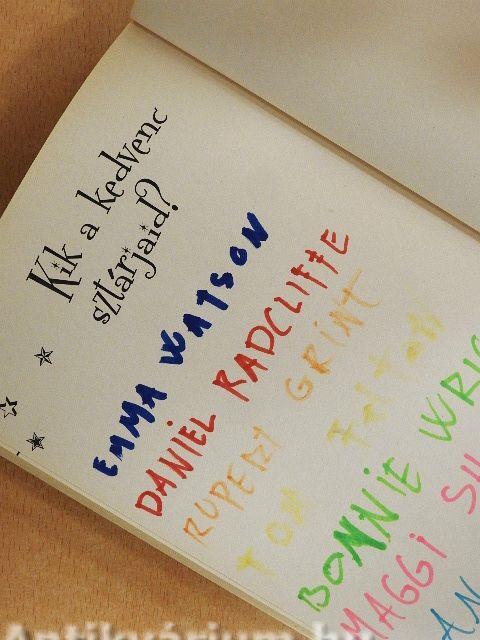 Kik a kedvenc
sztárjaid?
EMMA WATSON
DANIEL RADCLIFFE
RUPERT GRINT
TOM FELTON
BONNIE WRIG
MAGGI SM
AN
Antikvárium.hu